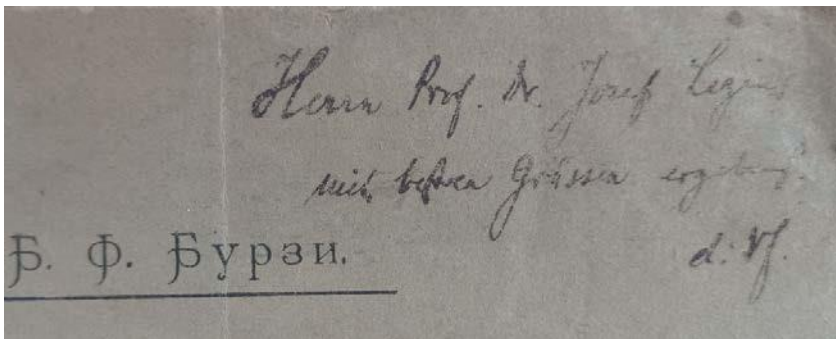 Herrn Prof. Dr. Josef Lezius
mit besten Grüssen ergebenst
d. Vf.
Б. Ф. Бурзи.